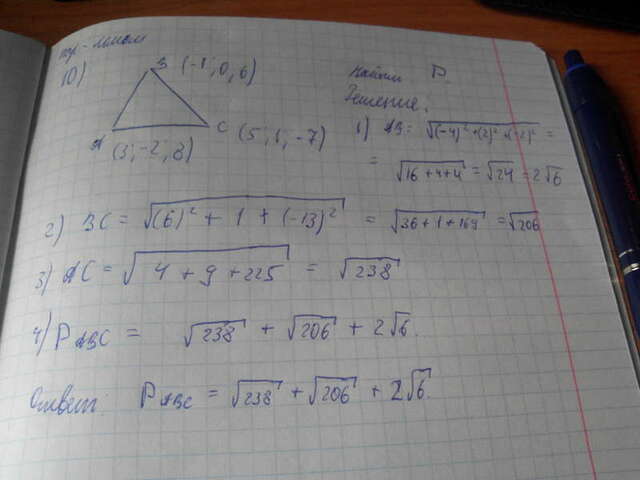 10)
B (-1; 0; 6)
A (3; -2; 8)
C (5; 1; -7)
Найти P.
Решение.
1) AB = √(-4)² + (2)² + (-2)² =
= √16 + 4 + 4 = √24 = 2√6
2) BC = √(6)² + 1 + (-13)² = √36 + 1 + 169 = √206
3) AC = √4 + 9 + 225 = √238
4) P ABC = √238 + √206 + 2√6.
Ответ: P ABC = √238 + √206 + 2√6.